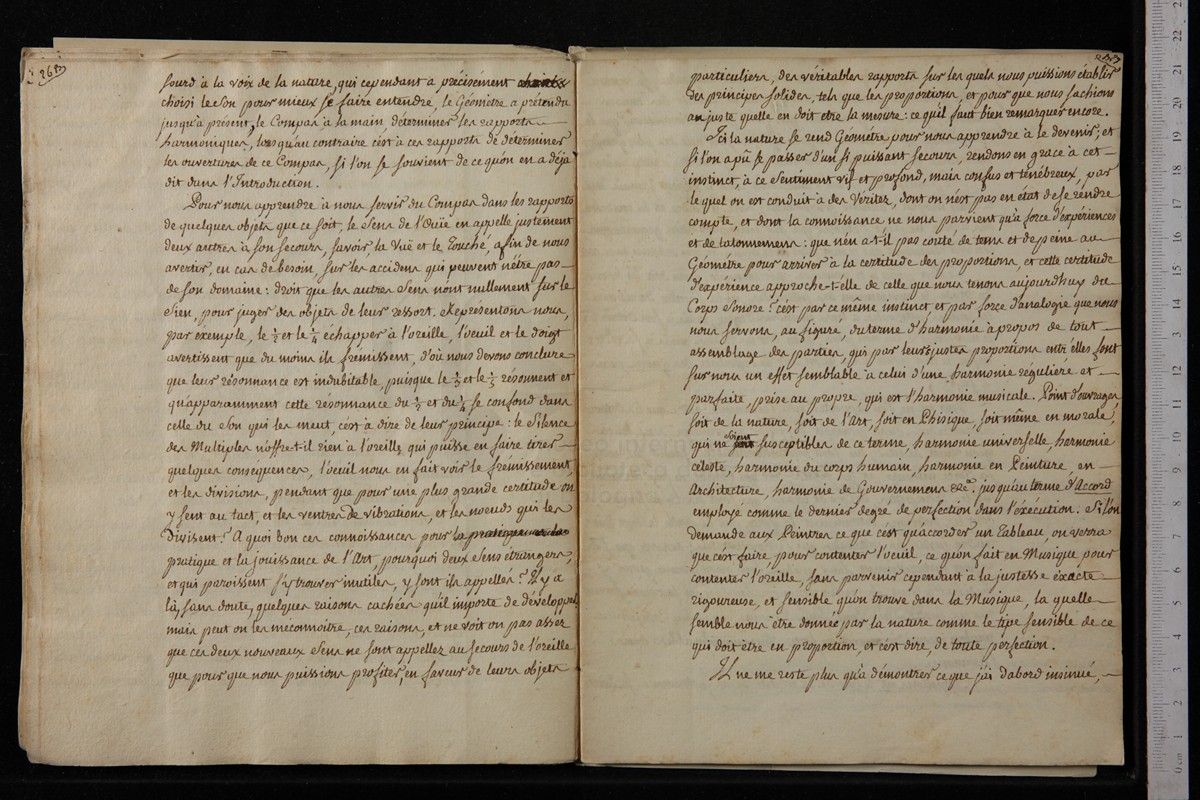 26
sourd à la voix de la nature, qui cependant a précisement
choisi le Son pour mieux se faire entendre, le Géometre a prétendu
jusqu'a présent, le Compas à la main, déterminer les rapports
harmoniques, lorsqu'au contraire c'est à ces rapports de déterminer
les ouvertures de ce Compas, si l'on se souvient de ce qu'on en a déja
dit dans l'Introduction.
Pour nous apprendre à nous servir du Compas dans les rapports
de quelques objets que ce soit, le Sens de l'Ouïe en appelle justement
deux autres à son secours, savoir, la Vuë et le Touché, afin de nous
avertir, en cas de besoin, sur les accidens qui peuvent n'être pas
de son domaine: droit que les autres Sens n'ont nullement sur le
Sien, pour juger des objets de leur ressort. Représentons nous,
par exemple, le ½ et le ¼ échapper à l'oreille, l'oeuil et le doigt
avertissent que du moins ils frémissent, d'où nous devons conclure
que leur résonnance est indubitable, puisque le ⅓ et le ⅕ résonnent et
qu'apparamment cette résonnance du ½ et du ¼ se confond dans
celle du Son qui les meut, c'est à dire de leur principe: le Silence
des Multiples n'offre-t-il rien à l'oreille, qui puisse en faire tirer
quelques conséquences, l'oeuil nous en fait voir le frémissement
et les divisions, pendant que pour une plus grande certitude on
y sent au tact, et les ventres de vibrations, et les noeuds qui les
divisent. A quoi bon ces connoissances pour la
pratique et la jouissance de l'Art, pourquoi deux Sens étrangers,
et qui paroissent s'y trouver inutiles, y sont ils appellés? Il y a
là, sans doute, quelques raisons cachées qu'il importe de développer
mais peut on les méconnoitre, ces raisons, et ne voit on pas assez
que ces deux nouveaux Sens ne sont appellez au secours de l'oreille
que pour que nous puissions profiter, en faveur de leurs objets
particuliers, des véritables rapports sur les quels nous puissions établir
des principes solides, tels que les proportions, et pour que nous sachions
au juste quelle en doit etre la mesure: ce qu'il faut bien remarquer encore.
Ici la nature se rend Géometre pour nous apprendre à le devenir; et
si l'on a pû se passer d'un si puissant secours, rendons en grace à cet
instinct, à ce Sentiment vif et profond, mais confus et ténébreux, par
le quel on est conduit à des Véritez, dont on n'est pas en état de se rendre
compte, et dont la connoissance ne nous parvient qu'à force d'expériences
et de tatonnemens: que n'en a-t-il pas couté de tems et de peine au
Géométre pour arriver à la certitude des proportions, et cette certitude
d'expérience approche-t-elle de celle que nous tenons aujourd'huy du
Corps Sonore? c'est par ce même instinct, et par force d'analogie que nous
nous servons, au figuré, du terme d'harmonie à propos de tout
assemblage des parties, qui par leurs justes proportions entr'elles font
sur nous un effet semblable à celui d'une harmonie reguliére et
parfaite, prise au propre, qui est l'harmonie musicale. Point d'ouvrages
soit de la nature, soit de l'Art, soit en Phisique, soit même en morale,
qui ne soient susceptibles de ce terme, harmonie universelle, harmonie
céleste, harmonie du corps humain, harmonie en Peinture, en
Architecture, harmonie de Gouvernemens &ca. jusqu'au terme d'Accord
employé comme le dernier degré de perfection dans l'éxécution. Si l'on
demande aux Peintres ce que c'est qu'accorder un Tableau, on verra
que c'est faire, pour contenter l'oeuil, ce qu'on fait en Musique pour
contenter l'oreille, sans parvenir cependant à la justesse éxacte
rigoureuse, et sensible qu'on trouve dans la Musique, la quelle
semble nous etre donnée par la nature comme le tipe sensible de ce
qui doit être en proportion, et c'est dire, de toute perfection.
Il ne me reste plus qu'à démontrer ce que j'ai d'abord insinué,
0 cm 1 2 3 4 5 6 7 8 9 10 11 12 13 14 15 16 17 18 19 20 21 22